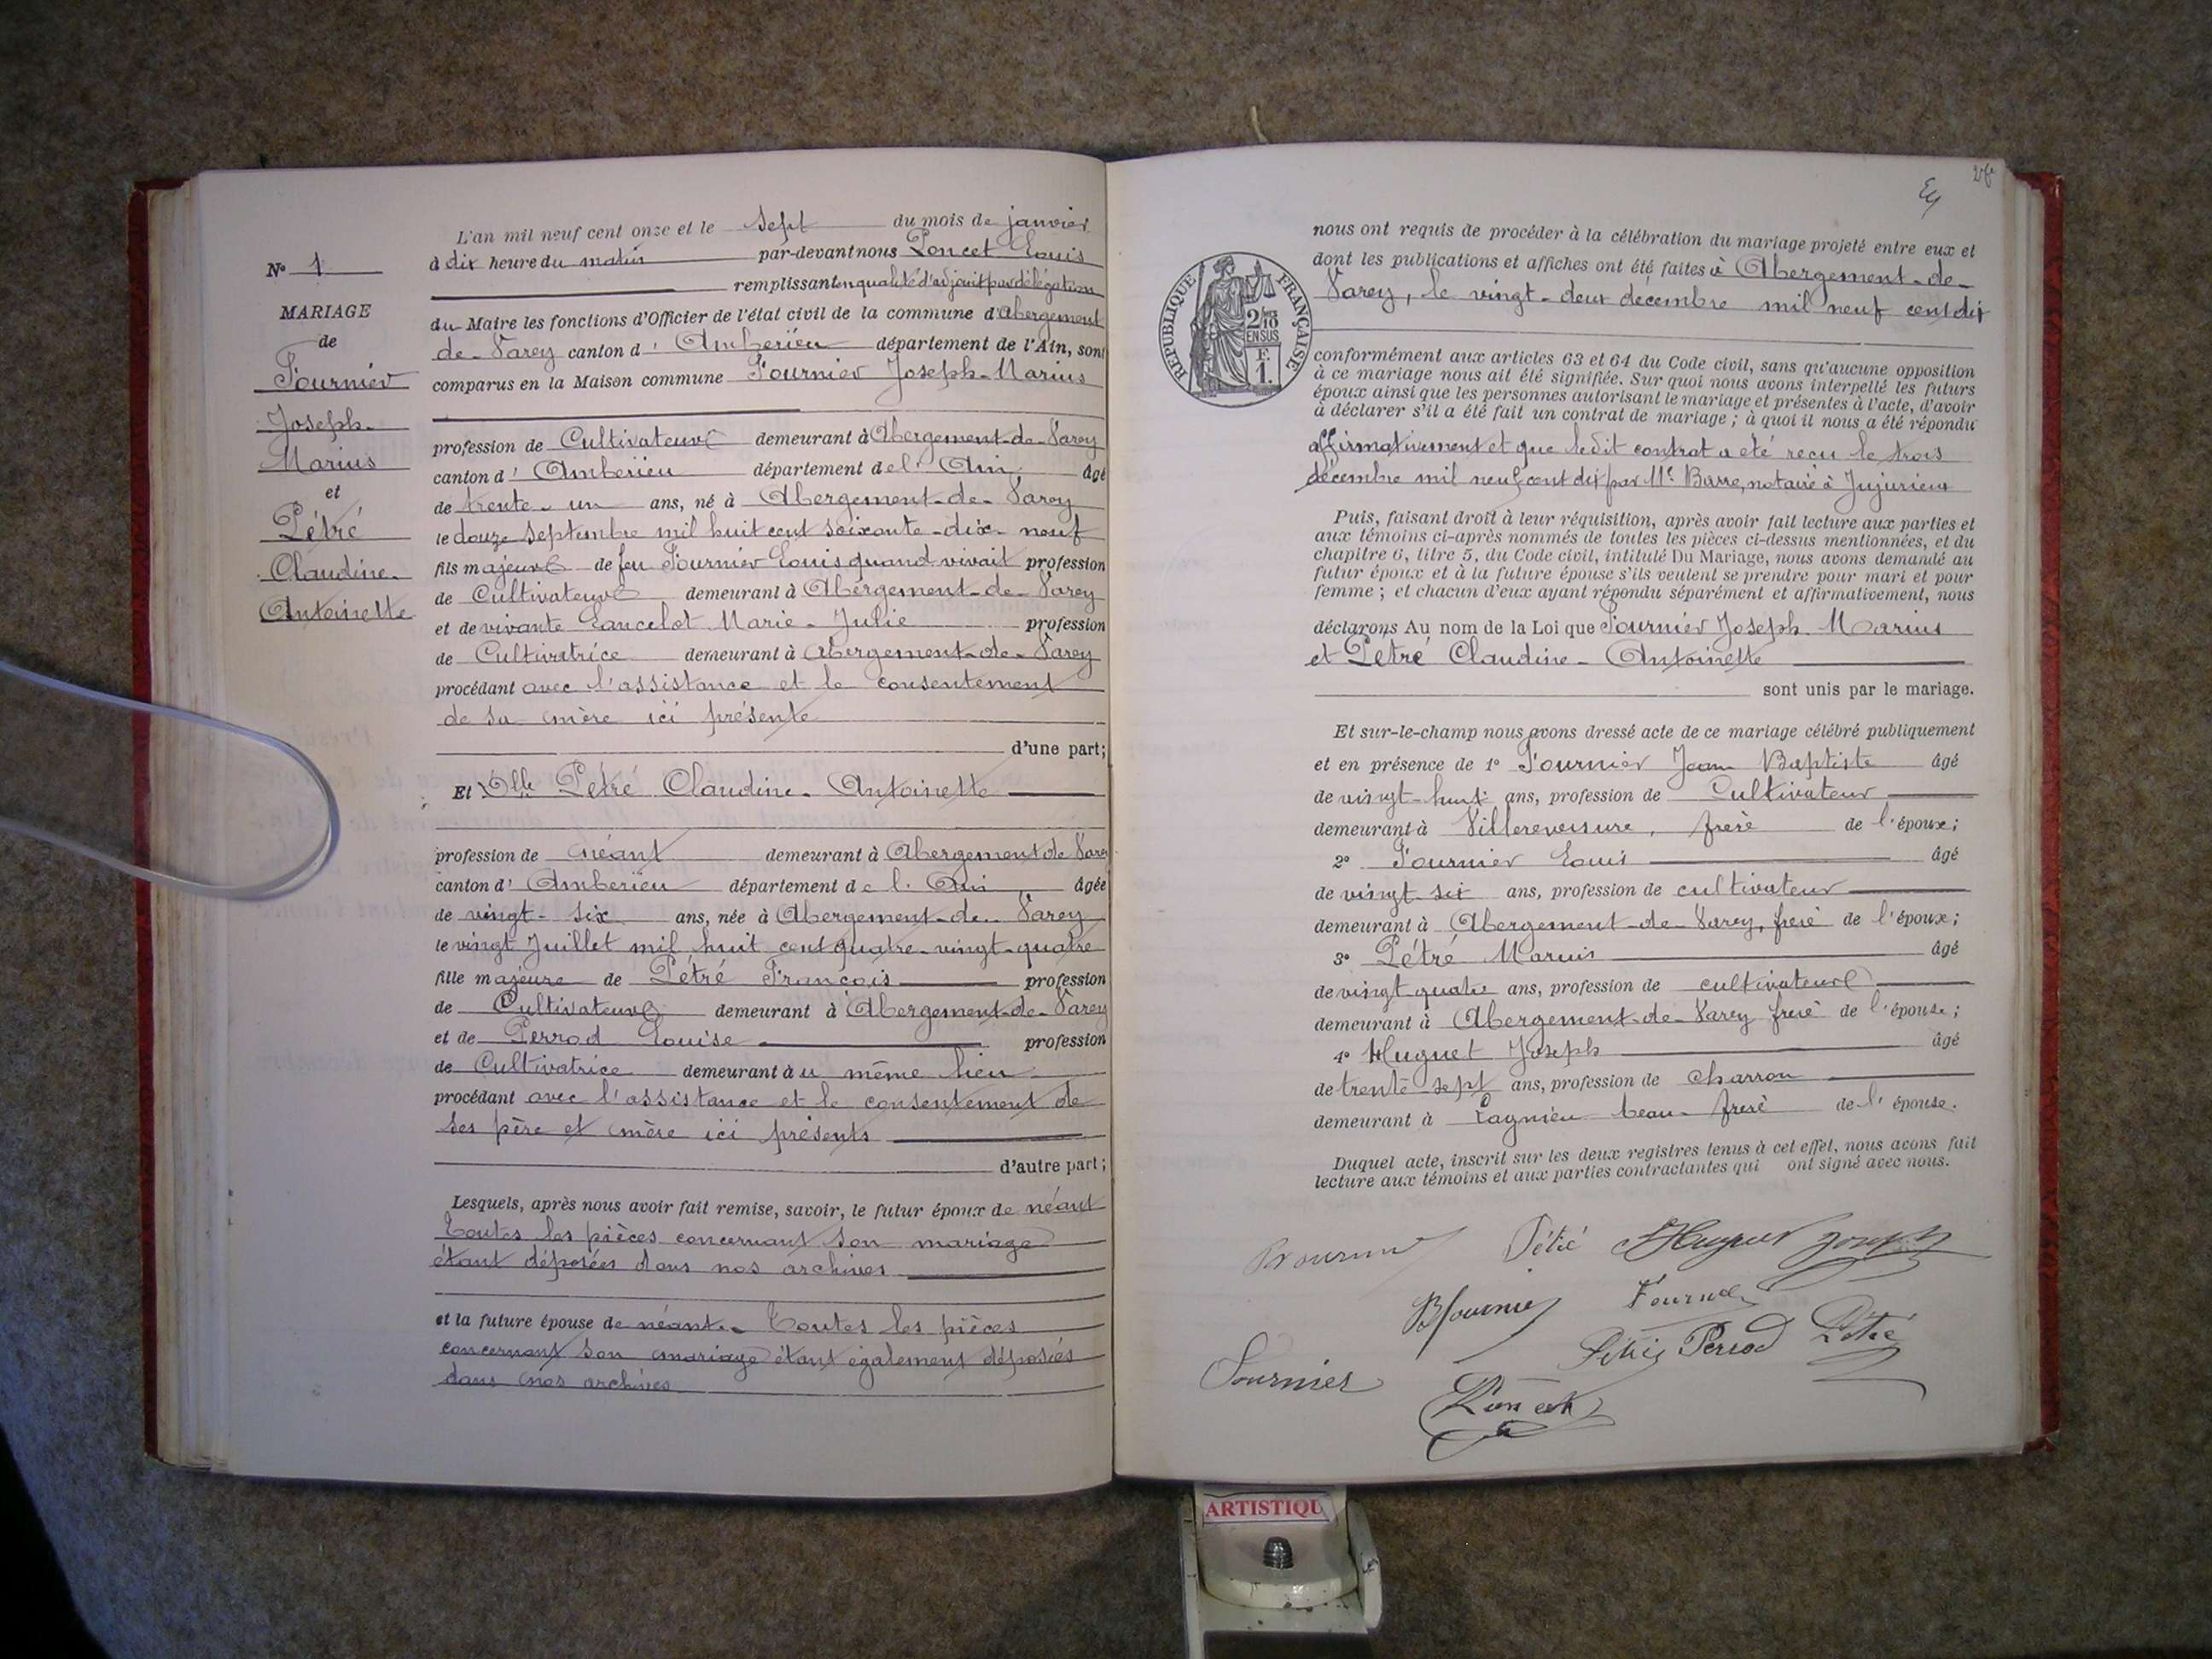 L'an mil neuf cent onze et le sept du mois de janvier
à dix heure du matin par-devant nous Poncet Louis
remplissant en qualité d'adjoint par délégation
du Maire les fonctions d'Officier de l'état civil de la commune d'Abergement
de-Varey canton d'Amberieu département de l'Ain, sont
comparus en la Maison commune Fournier Joseph-Marius
profession de Cultivateur demeurant à Abergement-de-Varey
canton d'Amberieu département de l'Ain âgé
de trente-un ans, né à Abergement-de-Varey
le douze Septembre mil huit cent soixante-dix-neuf
fils majeur de feu Fournier Louis quand vivait profession
de Cultivateur demeurant à Abergement-de-Varey
et de vivante Lancelot Marie-Julie profession
de Cultivatrice demeurant à Abergement-de-Varey
procédant avec l'assistance et le consentement
de sa mère ici présente
d'une part;
Et Dlle Pétré Claudine-Antoinette
profession de néant demeurant à Abergement de Varey
canton d'Amberieu département de l'Ain âgée
de vingt-six ans, née à Abergement-de-Varey
le vingt Juillet mil huit cent quatre-vingt-quatre
fille majeure de Pétré François profession
de Cultivateur demeurant à Abergement-de-Varey
et de Perrod Louise profession
de Cultivatrice demeurant au même lieu
procédant avec l'assistance et le consentement de
ses père et mère ici présents
d'autre part;
Lesquels, après nous avoir fait remise, savoir, le futur époux de néant
Toutes les pièces concernant son mariage
étant déposées dans nos archives
et la future épouse de néant.- Toutes les pièces
concernant son mariage étant également déposées
dans nos archives
No 1
MARIAGE
de
Fournier
Joseph-
Marius
et
Pétré
Claudine-
Antoinette
nous ont requis de procéder à la célébration du mariage projeté entre eux et
dont les publications et affiches ont été faites à Abergement-de-
Varey, le vingt-deux décembre mil neuf cent dix
RÉPUBLIQUE FRANÇAISE
2/10
EN SUS
F.
1.
conformément aux articles 63 et 64 du Code civil, sans qu'aucune opposition
à ce mariage nous ait été signifiée. Sur quoi nous avons interpellé les futurs
époux ainsi que les personnes autorisant le mariage et présentes à l'acte, d'avoir
à déclarer s'il a été fait un contrat de mariage ; à quoi il nous a été répondu
affirmativement et que ledit contrat a eté recu le trois
décembre mil neuf cent dix par Me Barre, notaire à Jujurieux
Puis, faisant droit à leur réquisition, après avoir fait lecture aux parties et
aux témoins ci-après nommés de toutes les pièces ci-dessus mentionnées, et du
chapitre 6, titre 5, du Code civil, intitulé Du Mariage, nous avons demandé au
futur époux et à la future épouse s'ils veulent se prendre pour mari et pour
femme ; et chacun d'eux ayant répondu séparément et affirmativement, nous
déclarons Au nom de la Loi que Fournier Joseph-Marius
et Pétré Claudine-Antoinette
sont unis par le mariage.
Et sur-le-champ nous avons dressé acte de ce mariage célébré publiquement
et en présence de 1º Fournier Jean Baptiste âgé
de vingt-huit ans, profession de Cultivateur
demeurant à Villereversure, frère de l'époux;
2º Fournier Louis âgé
de vingt six ans, profession de cultivateur
demeurant à Abergement-de-Varey, frère de l'époux;
3º Pétré Marius âgé
de vingt quatre ans, profession de cultivateur
demeurant à Abergement-de-Varey frère de l'épouse;
4º Huguet Joseph âgé
de trente-sept ans, profession de charron
demeurant à Lagnieu beau-frère de l'épouse.
Duquel acte, inscrit sur les deux registres tenus à cet effet, nous avons fait
lecture aux témoins et aux parties contractantes qui ont signé avec nous.
Pétré Huguet Joseph
Fournier
Perrod Pétré
Fournier
Poncet
ARTISTIQU